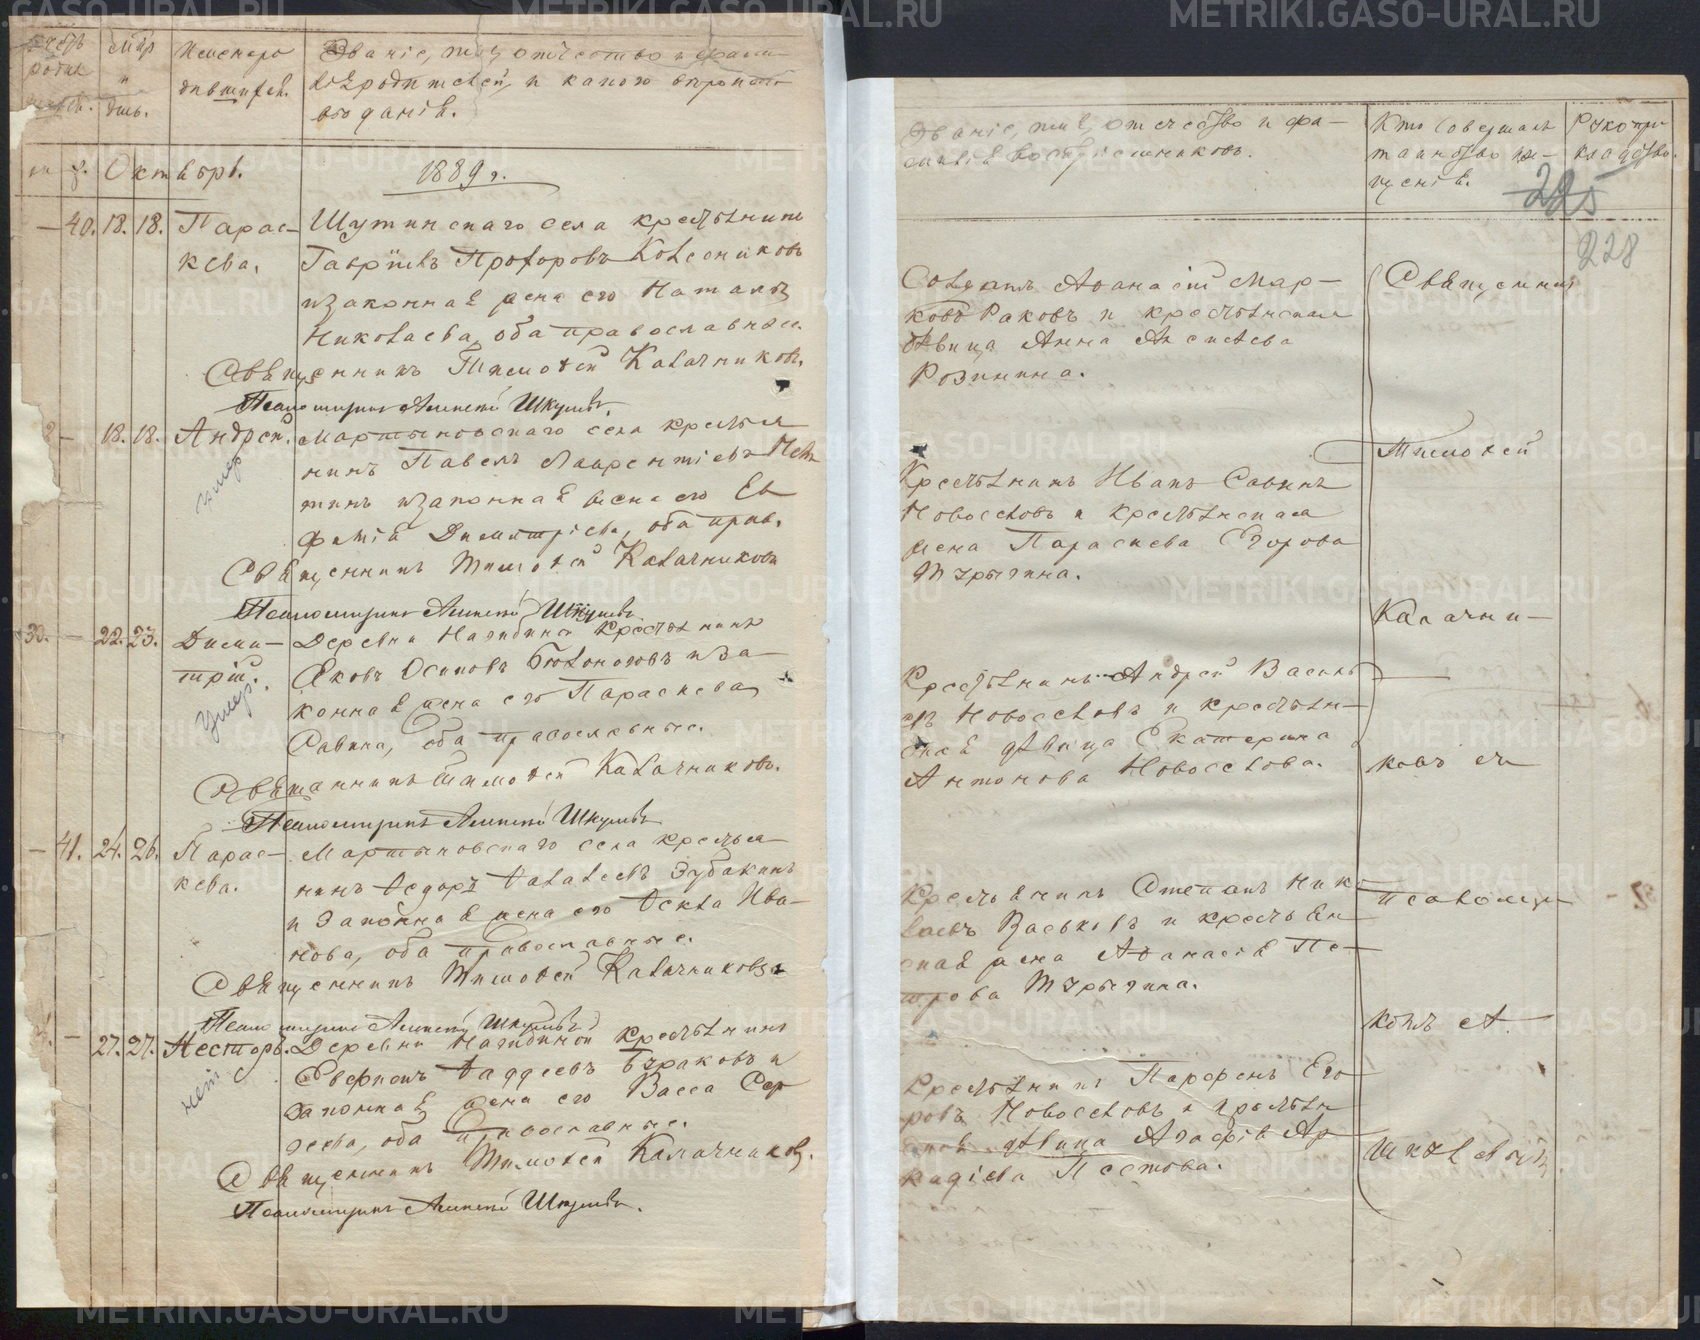 Счетъ родив
Мѣс. и день.
Имена родившихся.
Званіе, имя, отчество и фами
лія родителей, и какого вѣроиспо
вѣданія.
м. ж. Октябрь. 1889 г.
— 40. 18. 18. Парас-
кева.
Шутинскаго села крестьянинъ
Гавріилъ Прохоровъ Колесниковъ
и законная жена его Наталья
Николаева, оба православные.
Священникъ Тимофей Калачниковъ.
Псаломщикъ Алексѣй Шкулевъ.
— 18. 18. Андрей. умер
Мартыновскаго села крестья
нинъ Павелъ Лаврентіевъ
тинъ и законная жена его Ев
фимія Димитріева, оба прав.
Священникъ Тимофей Калачниковъ
Псаломщикъ Алексѣй Шкулевъ
30. — 22. 23. Дими-
трій. Умер.
Деревни Нагибиной крестьянинъ
Яковъ Осиповъ Бѣлоноговъ и за-
конная жена его Параскева
Савина, оба православные.
Священникъ Тимофей Калачниковъ.
Псаломщикъ Алексѣй Шкулевъ
— 41. 24. 26. Парас-
кева.
Мартыновскаго села крестья
нинъ Ѳедоръ Ѳалалеевъ Зубакинъ
и законная жена его Ѳекла Ива-
нова, оба православные.
Священникъ Тимофей Калачниковъ
Псаломщикъ Алексѣй Шкулевъ
— 27. 27. Несторъ. нет
Деревни Нагибиной крестьянинъ
Ѳаддеевъ Бураковъ и
законная жена его Васса Сер
геева, оба православные.
Священникъ Тимофей Калачниковъ.
Псаломщикъ Алексѣй Шкулевъ.
Званіе, имя, отчество и фа-
милія воспріемниковъ.
Кто совершалъ
таинство кре-
щенія.
Рукопри
кладство.
225
228
Солдатъ Аѳанасій Мар-
ковъ Раковъ и крестьянская
дѣвица Анна Алексѣева
Розинина.
Крестьянинъ Иванъ Савинъ
Новоселовъ и крестьянская
жена Параскева Егорова
Тчрыгина.
Крестьянинъ Андрей Василь
евъ Новоселовъ и крестьян-
ская дѣвица Екатерина
Антонова Новоселова.
Крестьянинъ Степанъ Ник
лаевъ Васьковъ и крестьян
ская жена Аѳанасія Пе-
трова Тчрыгина.
Крестьянинъ Парфенъ Его
ровъ Новоселовъ и крестьян
ская дѣвица Агафія Ар
кадіева Пестова.
Священникъ
Тимофей
Калачни-
ковъ съ
псаломщи
комъ А.
Шкулевымъ
METRIKI.GASO-URAL.RU